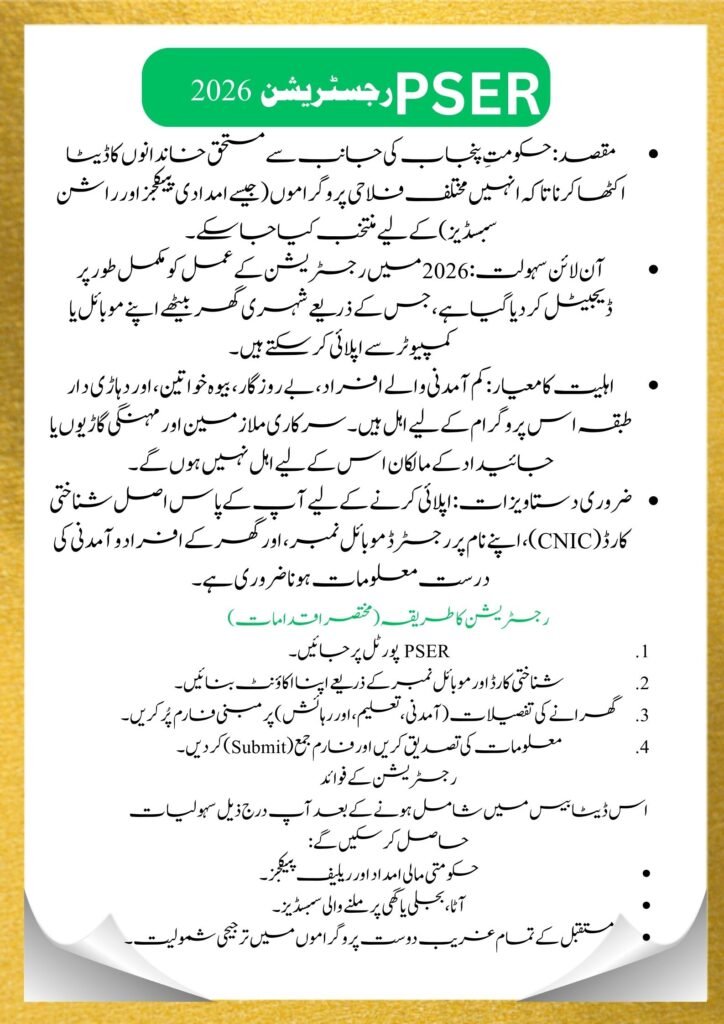 PSER رجسٹریشن 2026
مقصد: حکومتِ پنجاب کی جانب سے مستحق خاندانوں کا ڈیٹا
اکٹھا کرنا تاکہ انہیں مختلف فلاحی پروگراموں (جیسے امدادی پیکجز اور راشن
سبسڈیز) کے لیے منتخب کیا جا سکے۔
آن لائن سہولت: 2026 میں رجسٹریشن کے عمل کو مکمل طور پر
ڈیجیٹل کر دیا گیا ہے، جس کے ذریعے شہری گھر بیٹھے اپنے موبائل یا
کمپیوٹر سے اپلائی کر سکتے ہیں۔
اہلیت کا معیار: کم آمدنی والے افراد، بے روزگار، بیوہ خواتین، اور دہاڑی دار
طبقہ اس پروگرام کے لیے اہل ہیں۔ سرکاری ملازمین اور مہنگی گاڑیوں یا
جائیداد کے مالکان اس کے لیے اہل نہیں ہوں گے۔
ضروری دستاویزات: اپلائی کرنے کے لیے آپ کے پاس اصل شناختی
کارڈ (CNIC)، اپنے نام پر رجسٹرڈ موبائل نمبر، اور گھر کے افراد و آمدنی کی
درست معلومات ہونا ضروری ہے۔
رجسٹریشن کا طریقہ (مختصر اقدامات)
1. PSER پورٹل پر جائیں۔
2. شناختی کارڈ اور موبائل نمبر کے ذریعے اپنا اکاؤنٹ بنائیں۔
3. گھرانے کی تفصیلات (آمدنی، تعلیم، اور رہائش) پر مبنی فارم پُر کریں۔
4. معلومات کی تصدیق کریں اور فارم جمع (Submit) کر دیں۔
رجسٹریشن کے فوائد
اس ڈیٹا بیس میں شامل ہونے کے بعد آپ درج ذیل سہولیات
حاصل کر سکیں گے:
حکومتی مالی امداد اور ریلیف پیکجز۔
آٹا، بجلی یا گھی پر ملنے والی سبسڈیز۔
مستقبل کے تمام غریب دوست پروگراموں میں ترجیحی شمولیت۔